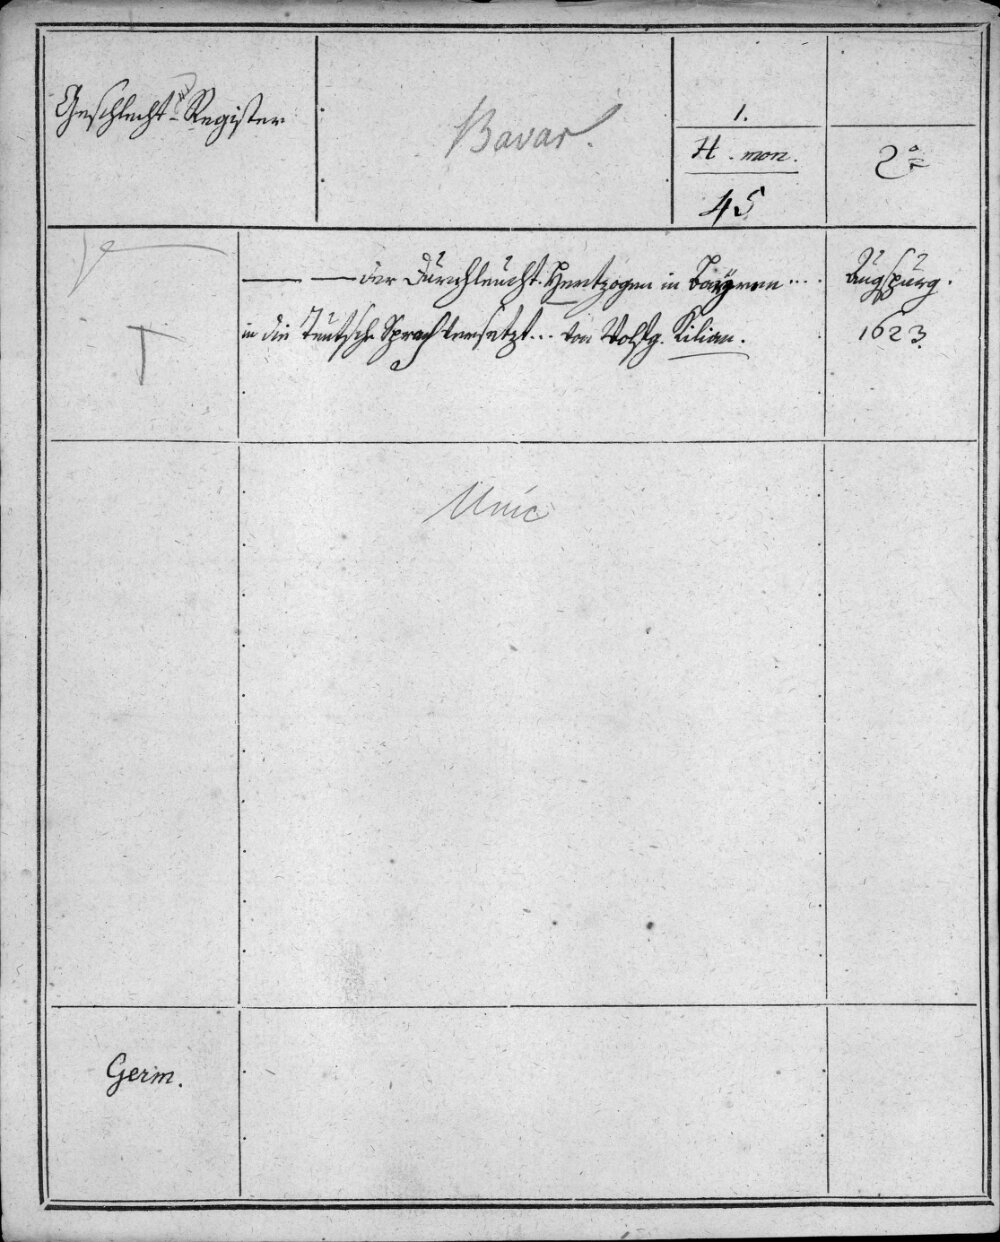 Geschlecht-Register
Bavar.
1.
H. mon.
45
2°
— — der Durchleucht. Hertzogen in Bayren ...
in die Teutsche Sprach versetzt... von Wolfg. Kilian.
Augspurg.
1623.
Unic
Germ.